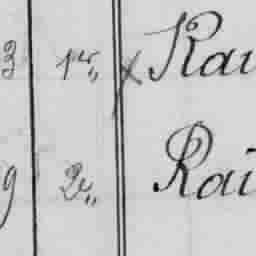 3 1er,, x Rai
9 2e,, Rai